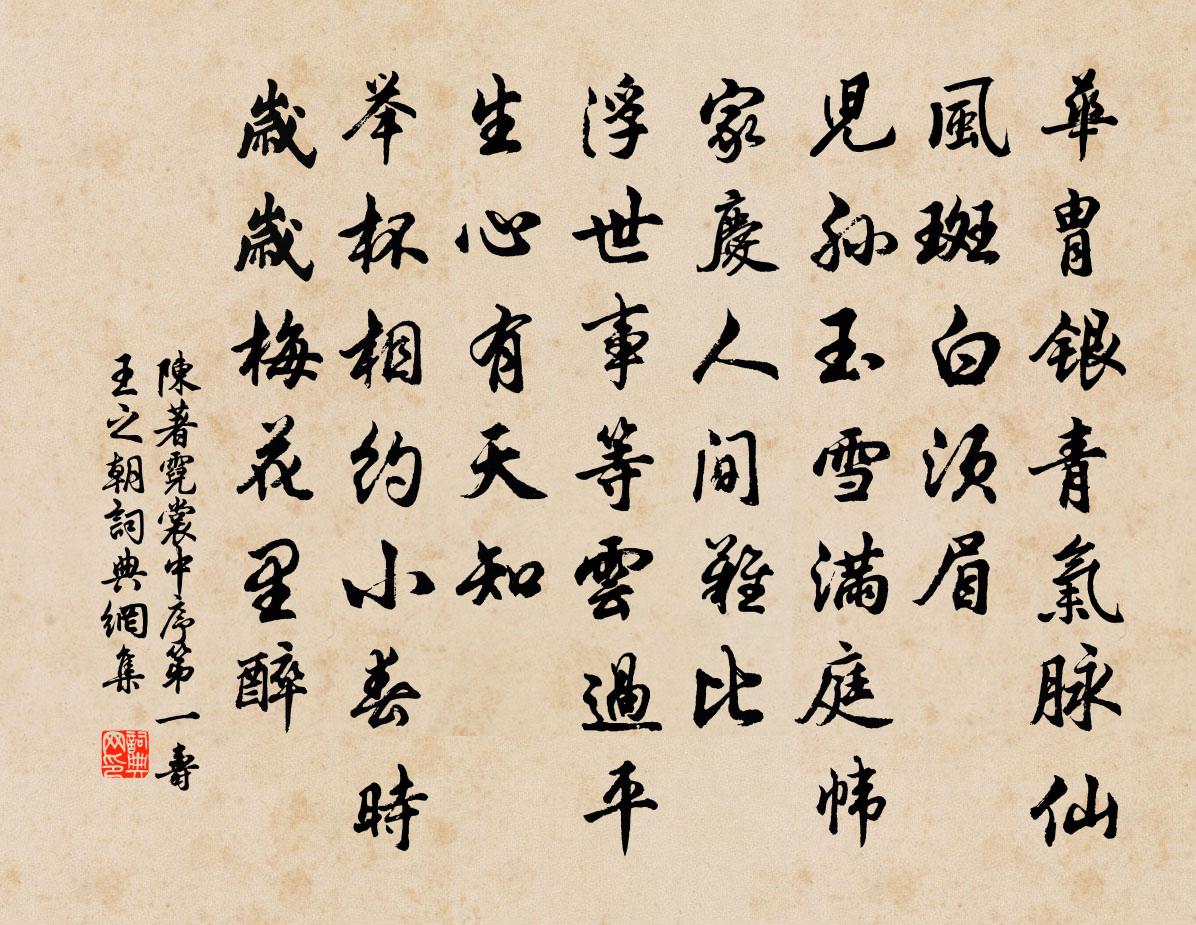 華胄銀青氣脉仙
風斑白須眉
児孙玉雪满庭帏
家慶人间难比
浮世事等雲過平
生心有天知
举杯相约小春時
歳歳梅花里醉
陳著霓裳中序第一壽
王之朝詞典網集
詞典网印